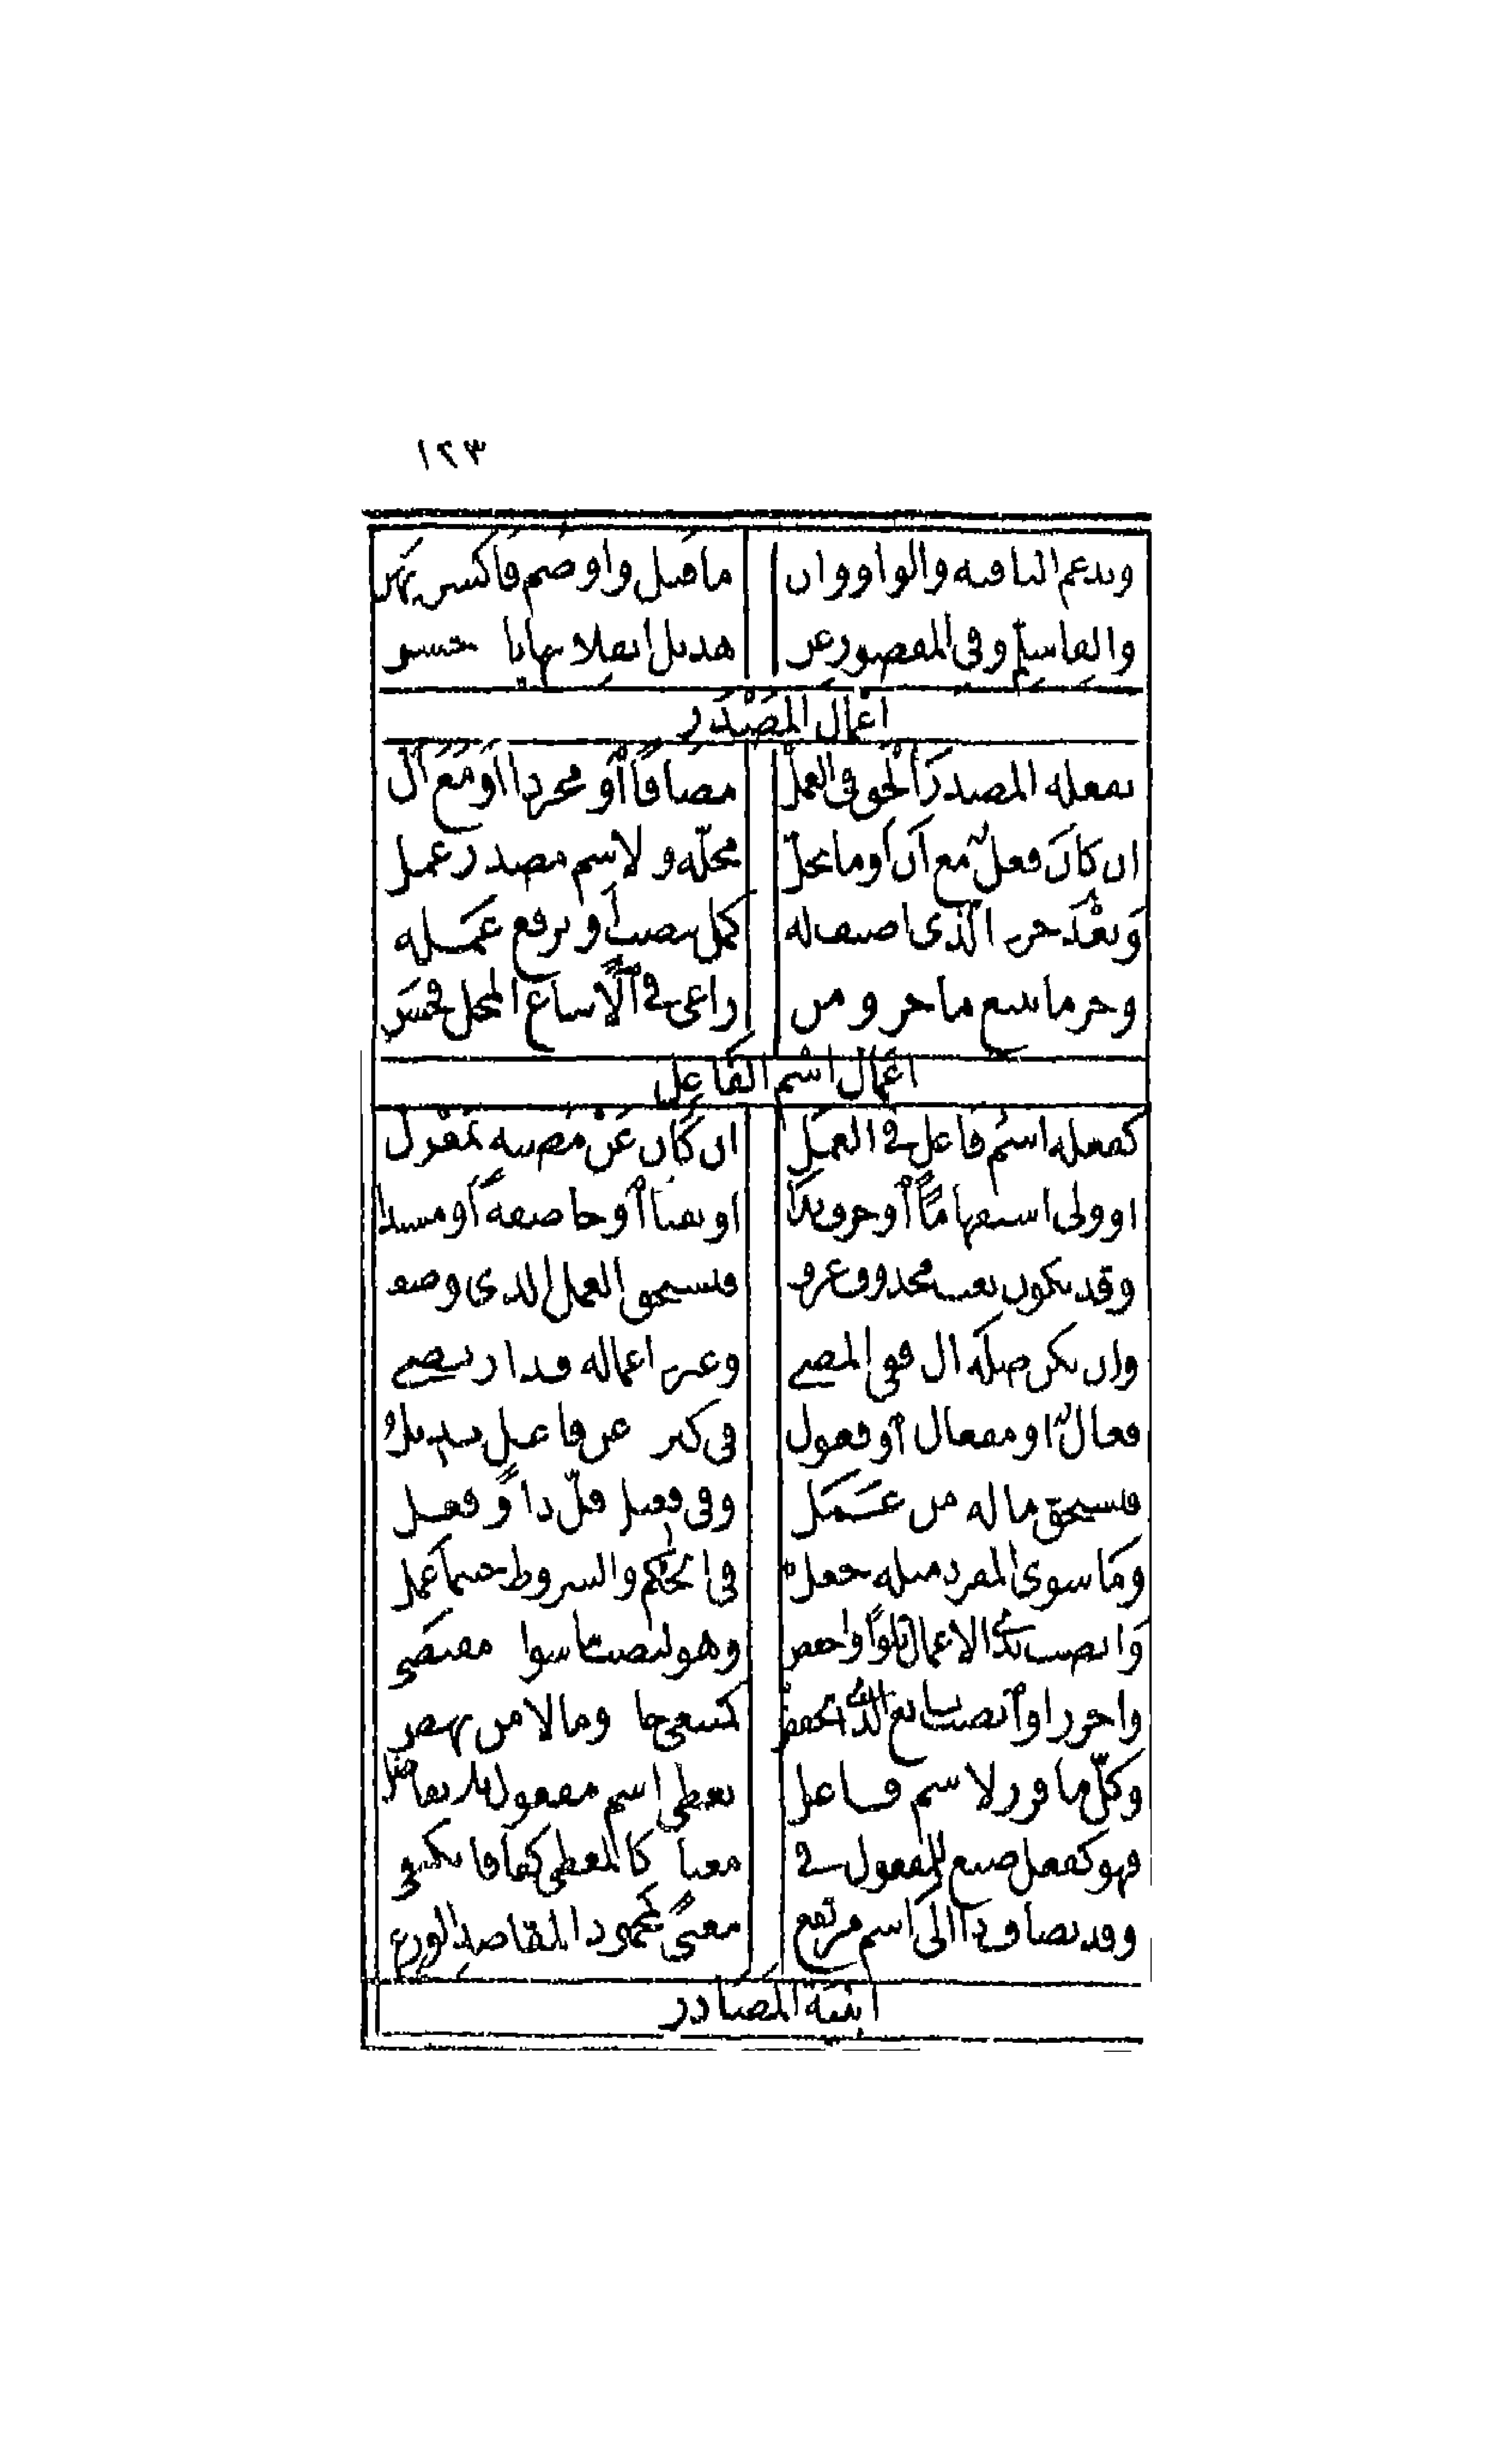 ١٢٣
وتدغم اليا فيه والواو وان ما قبل واو ضم فاكسره يهن
والفا سلم وفي المقصور عن هذيل انقلابها يا حسن
اعمال المصدر
بفعله المصدر الحق في العمل مضافا أو مجردا أو مع أل
ان كان فعل مع أن أو ما يحل محله ولاسم مصدر عمل
وبعد جره الذي اضيف له كمل بنصب أو برفع عمله
وجر ما يتبع ما جر ومن راعى في الاتباع المحل فحسن
اعمال اسم الفاعل
كفعله اسم فاعل في العمل ان كان عن مضيه بمعزل
او ولى استفهاما أو حرف ندا او نفيا أو جا صفة أو مسندا
وقد يكون نعت محذوف عرف فيستحق العمل الذي وصف
وان يكن صلة ال ففي المضي وغيره اعماله قد ارتضي
فعال او مفعال أو فعول في كثرة عن فاعل بديل
فيستحق ماله من عمل وفي فعيل قل ذا وفعل
وما سوى المفرد مثله جعل في الحكم والشروط حيثما عمل
وانصب بذي الاعمال تلوا واخفض وهو لنصب ما سوا مقتضي
واجرر او أنصب تابع الذي انخفض كمبتغي جا ومالا من نهض
وكل ما قرر لاسم فاعل يعطى اسم مفعول بلا تفاضل
فهو كفعل صيغ للمفعول في معنا كالمعطى كفافا يكتفي
وقد يضاف ذا الى اسم مرتفع معنى كمحمود المقاصد الورع
ابنية المصادر